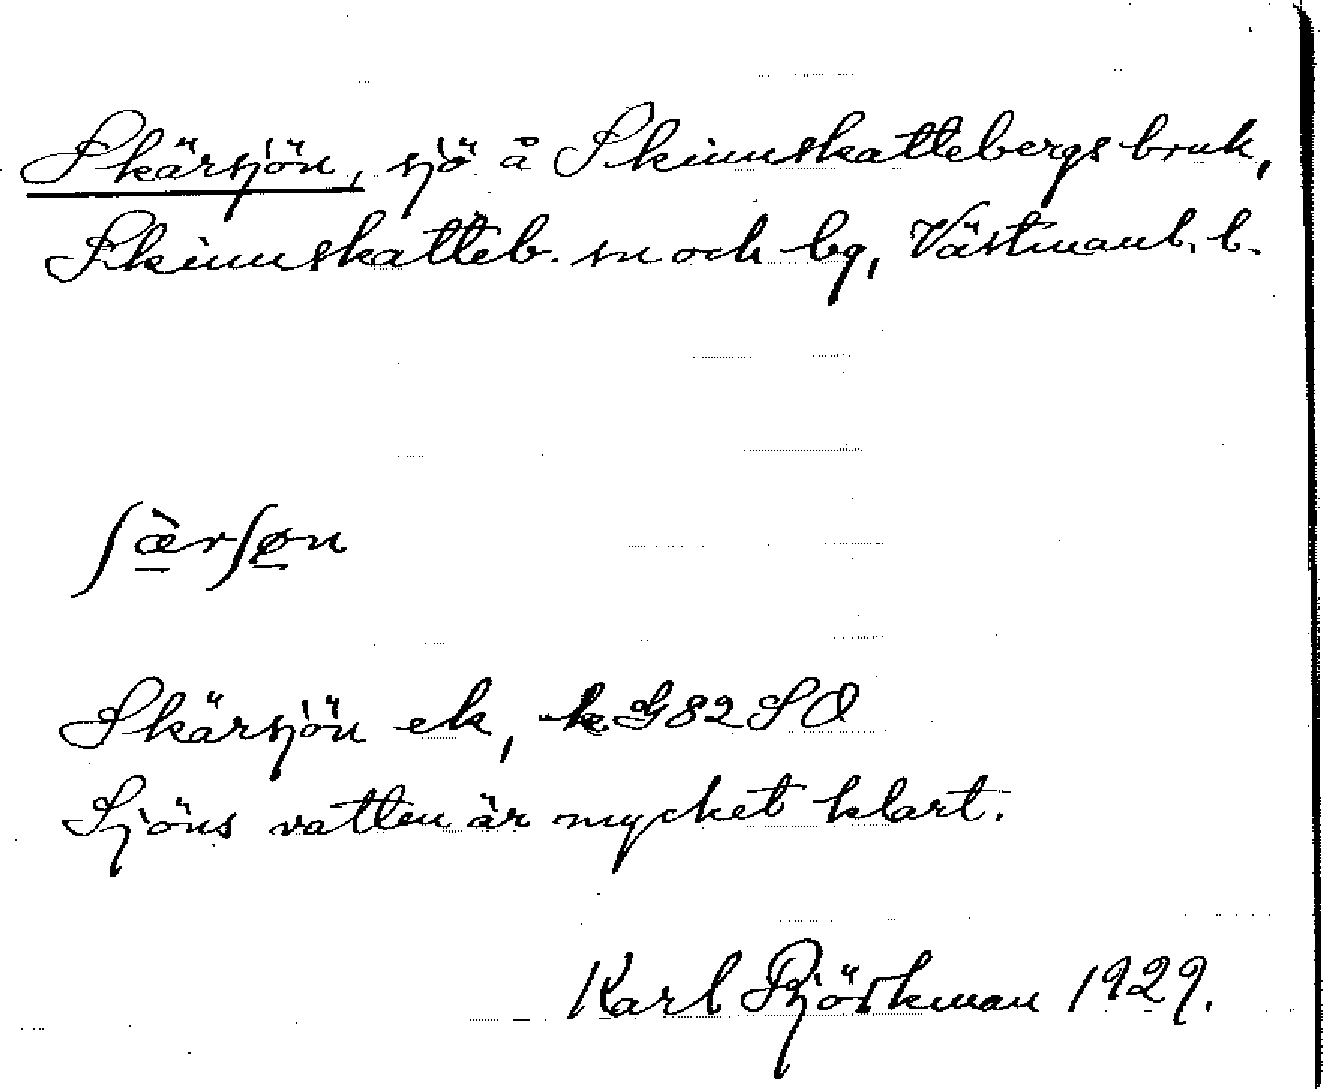 Skärsjön, sjö å Skinnskattebergs bruk,
Skinnskatteb. sn och bg, Västmanl. l.
ʃæ̀rʃøn
Skärsjön ek, k G 82 SO
Sjöns vatten är mycket klart.
Karl Björkman 1929.